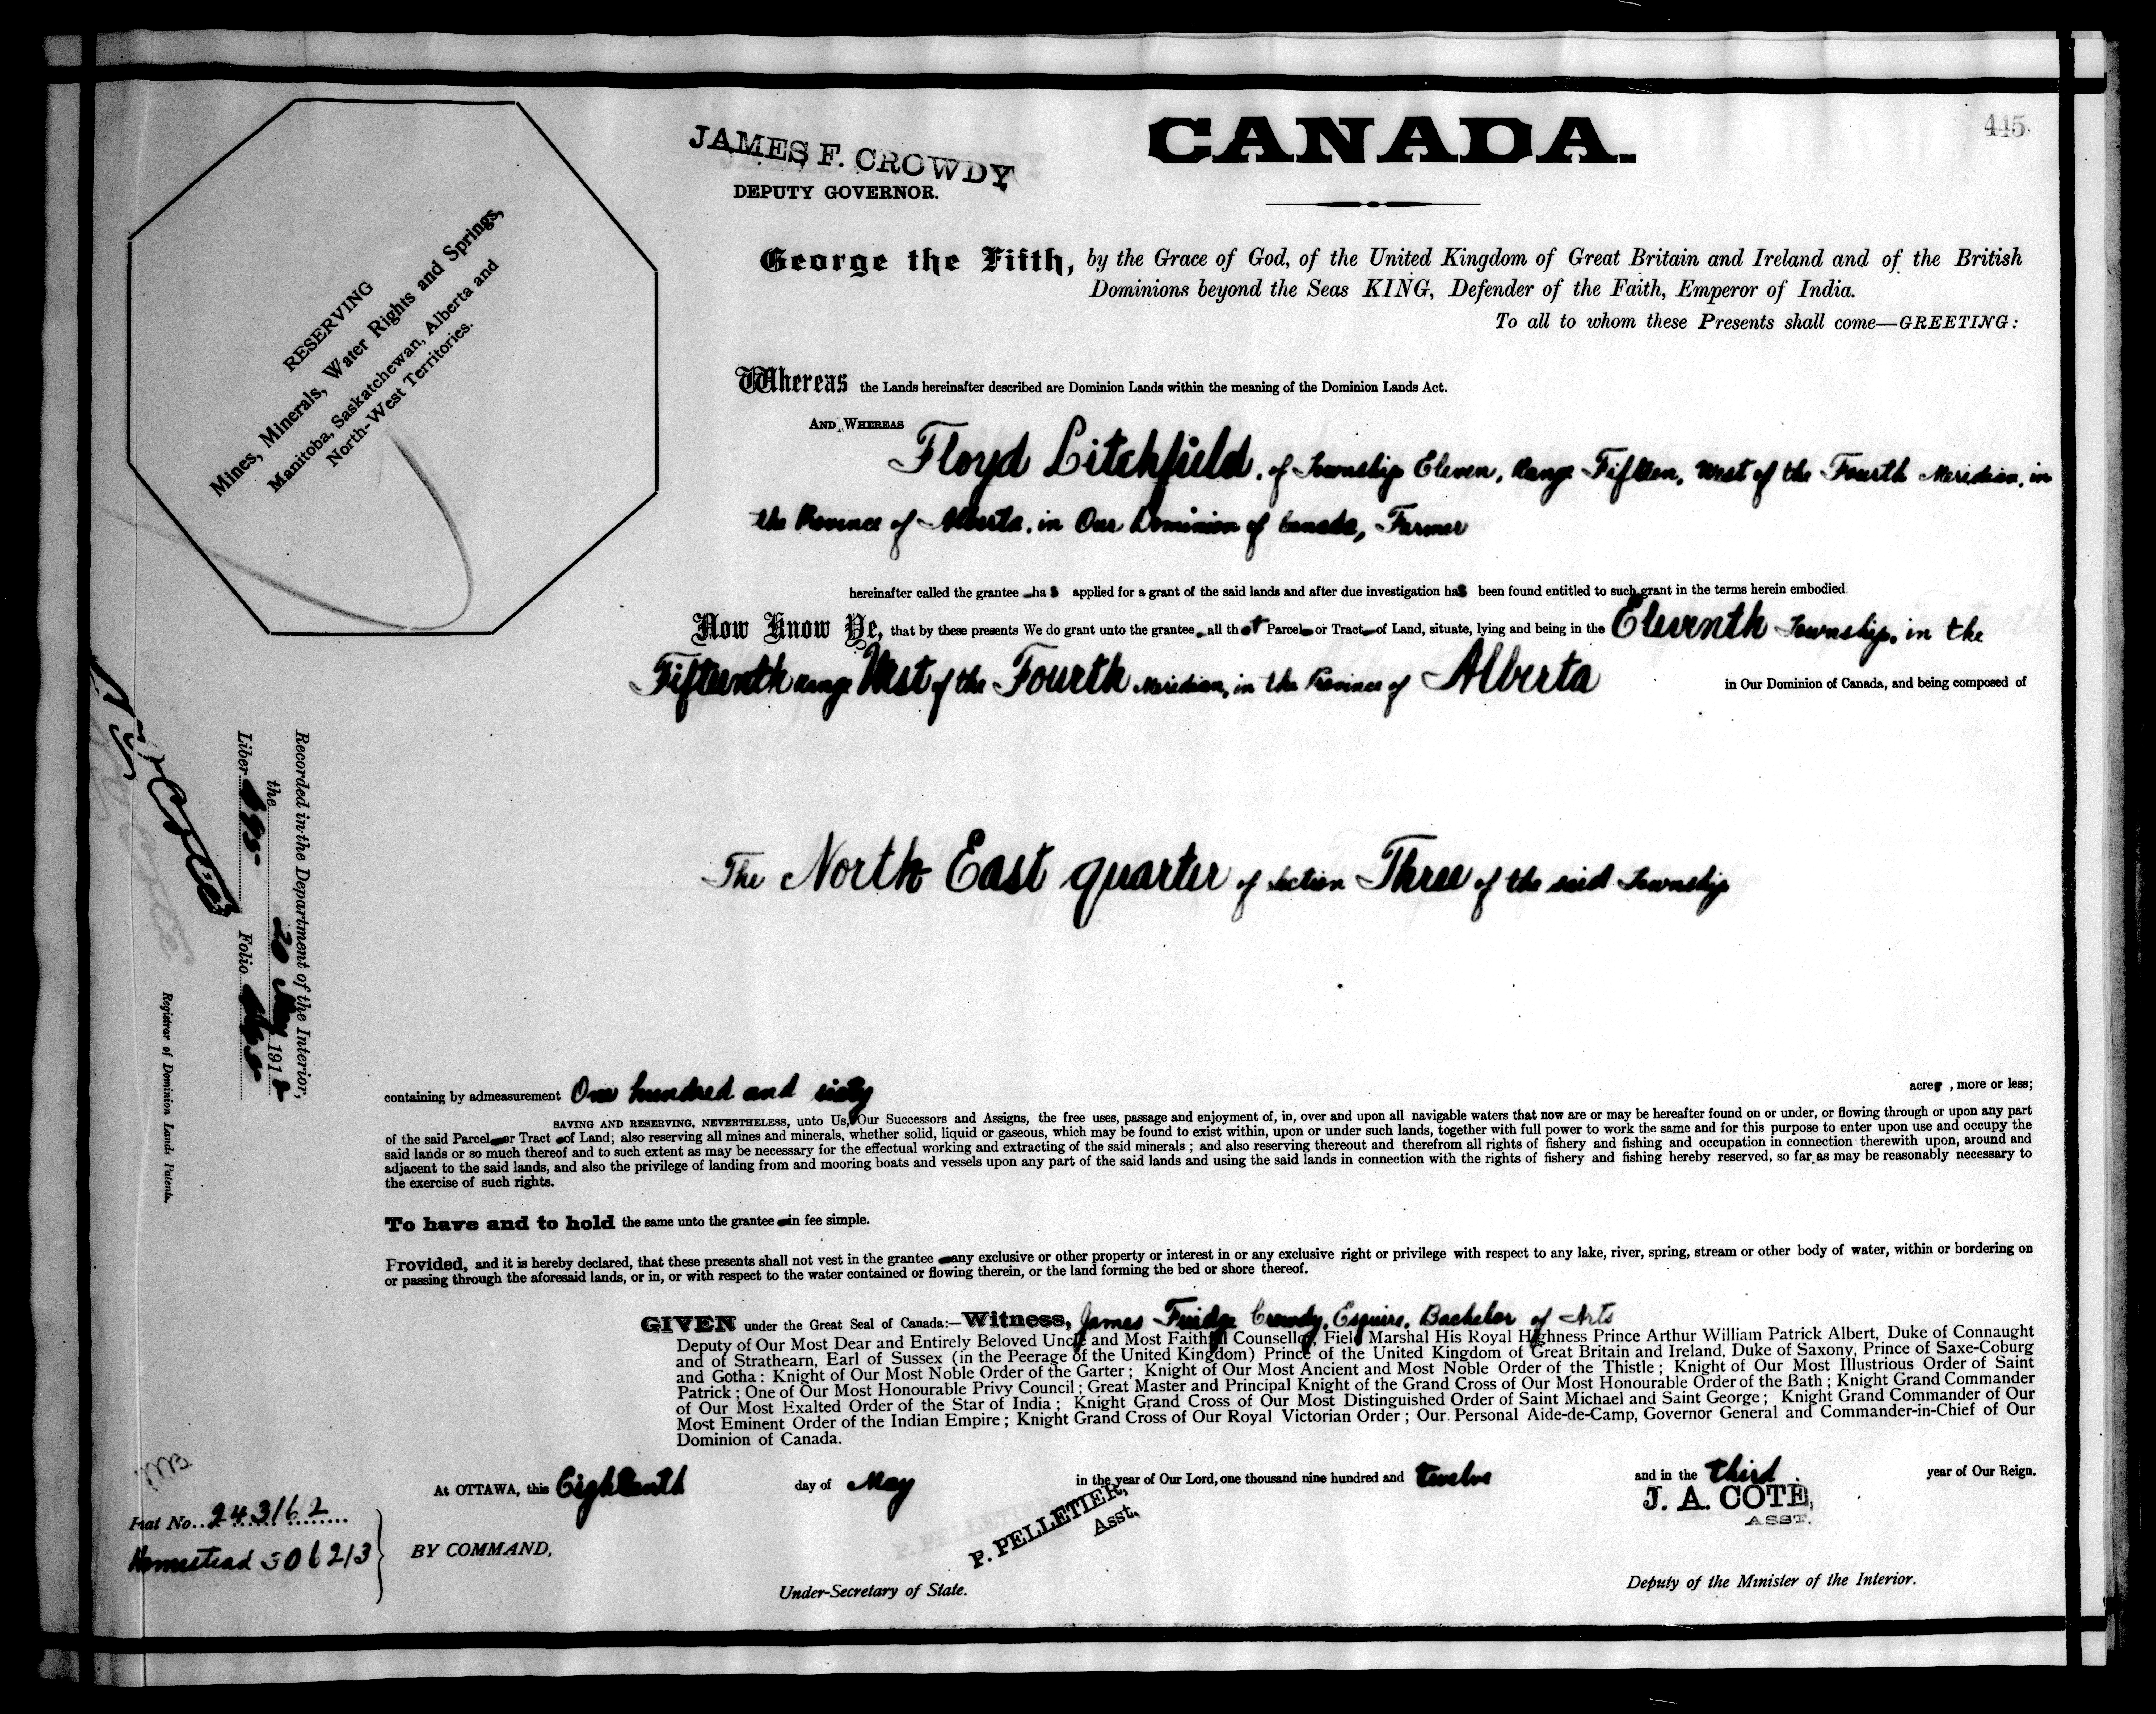 445
CANADA.
JAMES F. CROWDY
DEPUTY GOVERNOR.
RESERVING
Mines, Minerals, Water Rights and Springs,
Manitoba, Saskatchewan, Alberta and
North-West Territories.
George the Fifth, by the Grace of God, of the United Kingdom of Great Britain and Ireland and of the British
Dominions beyond the Seas KING, Defender of the Faith, Emperor of India.
To all to whom these Presents shall come—GREETING:
Whereas the Lands hereinafter described are Dominion Lands within the meaning of the Dominion Lands Act.
AND WHEREAS Floyd Litchfield, of Township Eleven, Range Fifteen, West of the Fourth Meridian, in
the Province of Alberta, in Our Dominion of Canada, Farmer
hereinafter called the grantee has applied for a grant of the said lands and after due investigation has been found entitled to such grant in the terms herein embodied.
Now Know Ye, that by these presents We do grant unto the grantee all that Parcel or Tract of Land, situate, lying and being in the Eleventh Township, in the
Fifteenth Range West of the Fourth Meridian, in the Province of Alberta in Our Dominion of Canada, and being composed of
The North East quarter of Section Three of the said Township
Recorded in the Department of the Interior,
the 20 May 1912
Liber Folio
Registrar of Dominion Lands Patents.
containing by admeasurement One hundred and sixty acres, more or less;
SAVING AND RESERVING, NEVERTHELESS, unto Us, Our Successors and Assigns, the free uses, passage and enjoyment of, in, over and upon all navigable waters that now are or may be hereafter found on or under, or flowing through or upon any part
of the said Parcel or Tract of Land; also reserving all mines and minerals, whether solid, liquid or gaseous, which may be found to exist within, upon or under such lands, together with full power to work the same and for this purpose to enter upon use and occupy the
said lands or so much thereof and to such extent as may be necessary for the effectual working and extracting of the said minerals; and also reserving thereout and therefrom all rights of fishery and fishing and occupation in connection therewith upon, around and
adjacent to the said lands, and also the privilege of landing from and mooring boats and vessels upon any part of the said lands and using the said lands in connection with the rights of fishery and fishing hereby reserved, so far as may be reasonably necessary to
the exercise of such rights.
To have and to hold the same unto the grantee in fee simple.
Provided, and it is hereby declared, that these presents shall not vest in the grantee any exclusive or other property or interest in or any exclusive right or privilege with respect to any lake, river, spring, stream or other body of water, within or bordering on
or passing through the aforesaid lands, or in, or with respect to the water contained or flowing therein, or the land forming the bed or shore thereof.
GIVEN under the Great Seal of Canada:—Witness, James Fuidge Crowdy, Esquire, Bachelor of Arts
Deputy of Our Most Dear and Entirely Beloved Uncle and Most Faithful Counsellor, Field Marshal His Royal Highness Prince Arthur William Patrick Albert, Duke of Connaught
and of Strathearn, Earl of Sussex (in the Peerage of the United Kingdom) Prince of the United Kingdom of Great Britain and Ireland, Duke of Saxony, Prince of Saxe-Coburg
and Gotha: Knight of Our Most Noble Order of the Garter; Knight of Our Most Ancient and Most Noble Order of the Thistle; Knight of Our Most Illustrious Order of Saint
Patrick; One of Our Most Honourable Privy Council; Great Master and Principal Knight of the Grand Cross of Our Most Honourable Order of the Bath; Knight Grand Commander
of Our Most Exalted Order of the Star of India; Knight Grand Cross of Our Most Distinguished Order of Saint Michael and Saint George; Knight Grand Commander of Our
Most Eminent Order of the Indian Empire; Knight Grand Cross of Our Royal Victorian Order; Our Personal Aide-de-Camp, Governor General and Commander-in-Chief of Our
Dominion of Canada.
At OTTAWA, this Eighteenth day of May in the year of Our Lord, one thousand nine hundred and twelve and in the third year of Our Reign.
P. PELLETIER,
Asst.
J. A. COTÉ,
ASST.
Fiat No. 243162
Homestead 506213
BY COMMAND,
Under-Secretary of State.
Deputy of the Minister of the Interior.